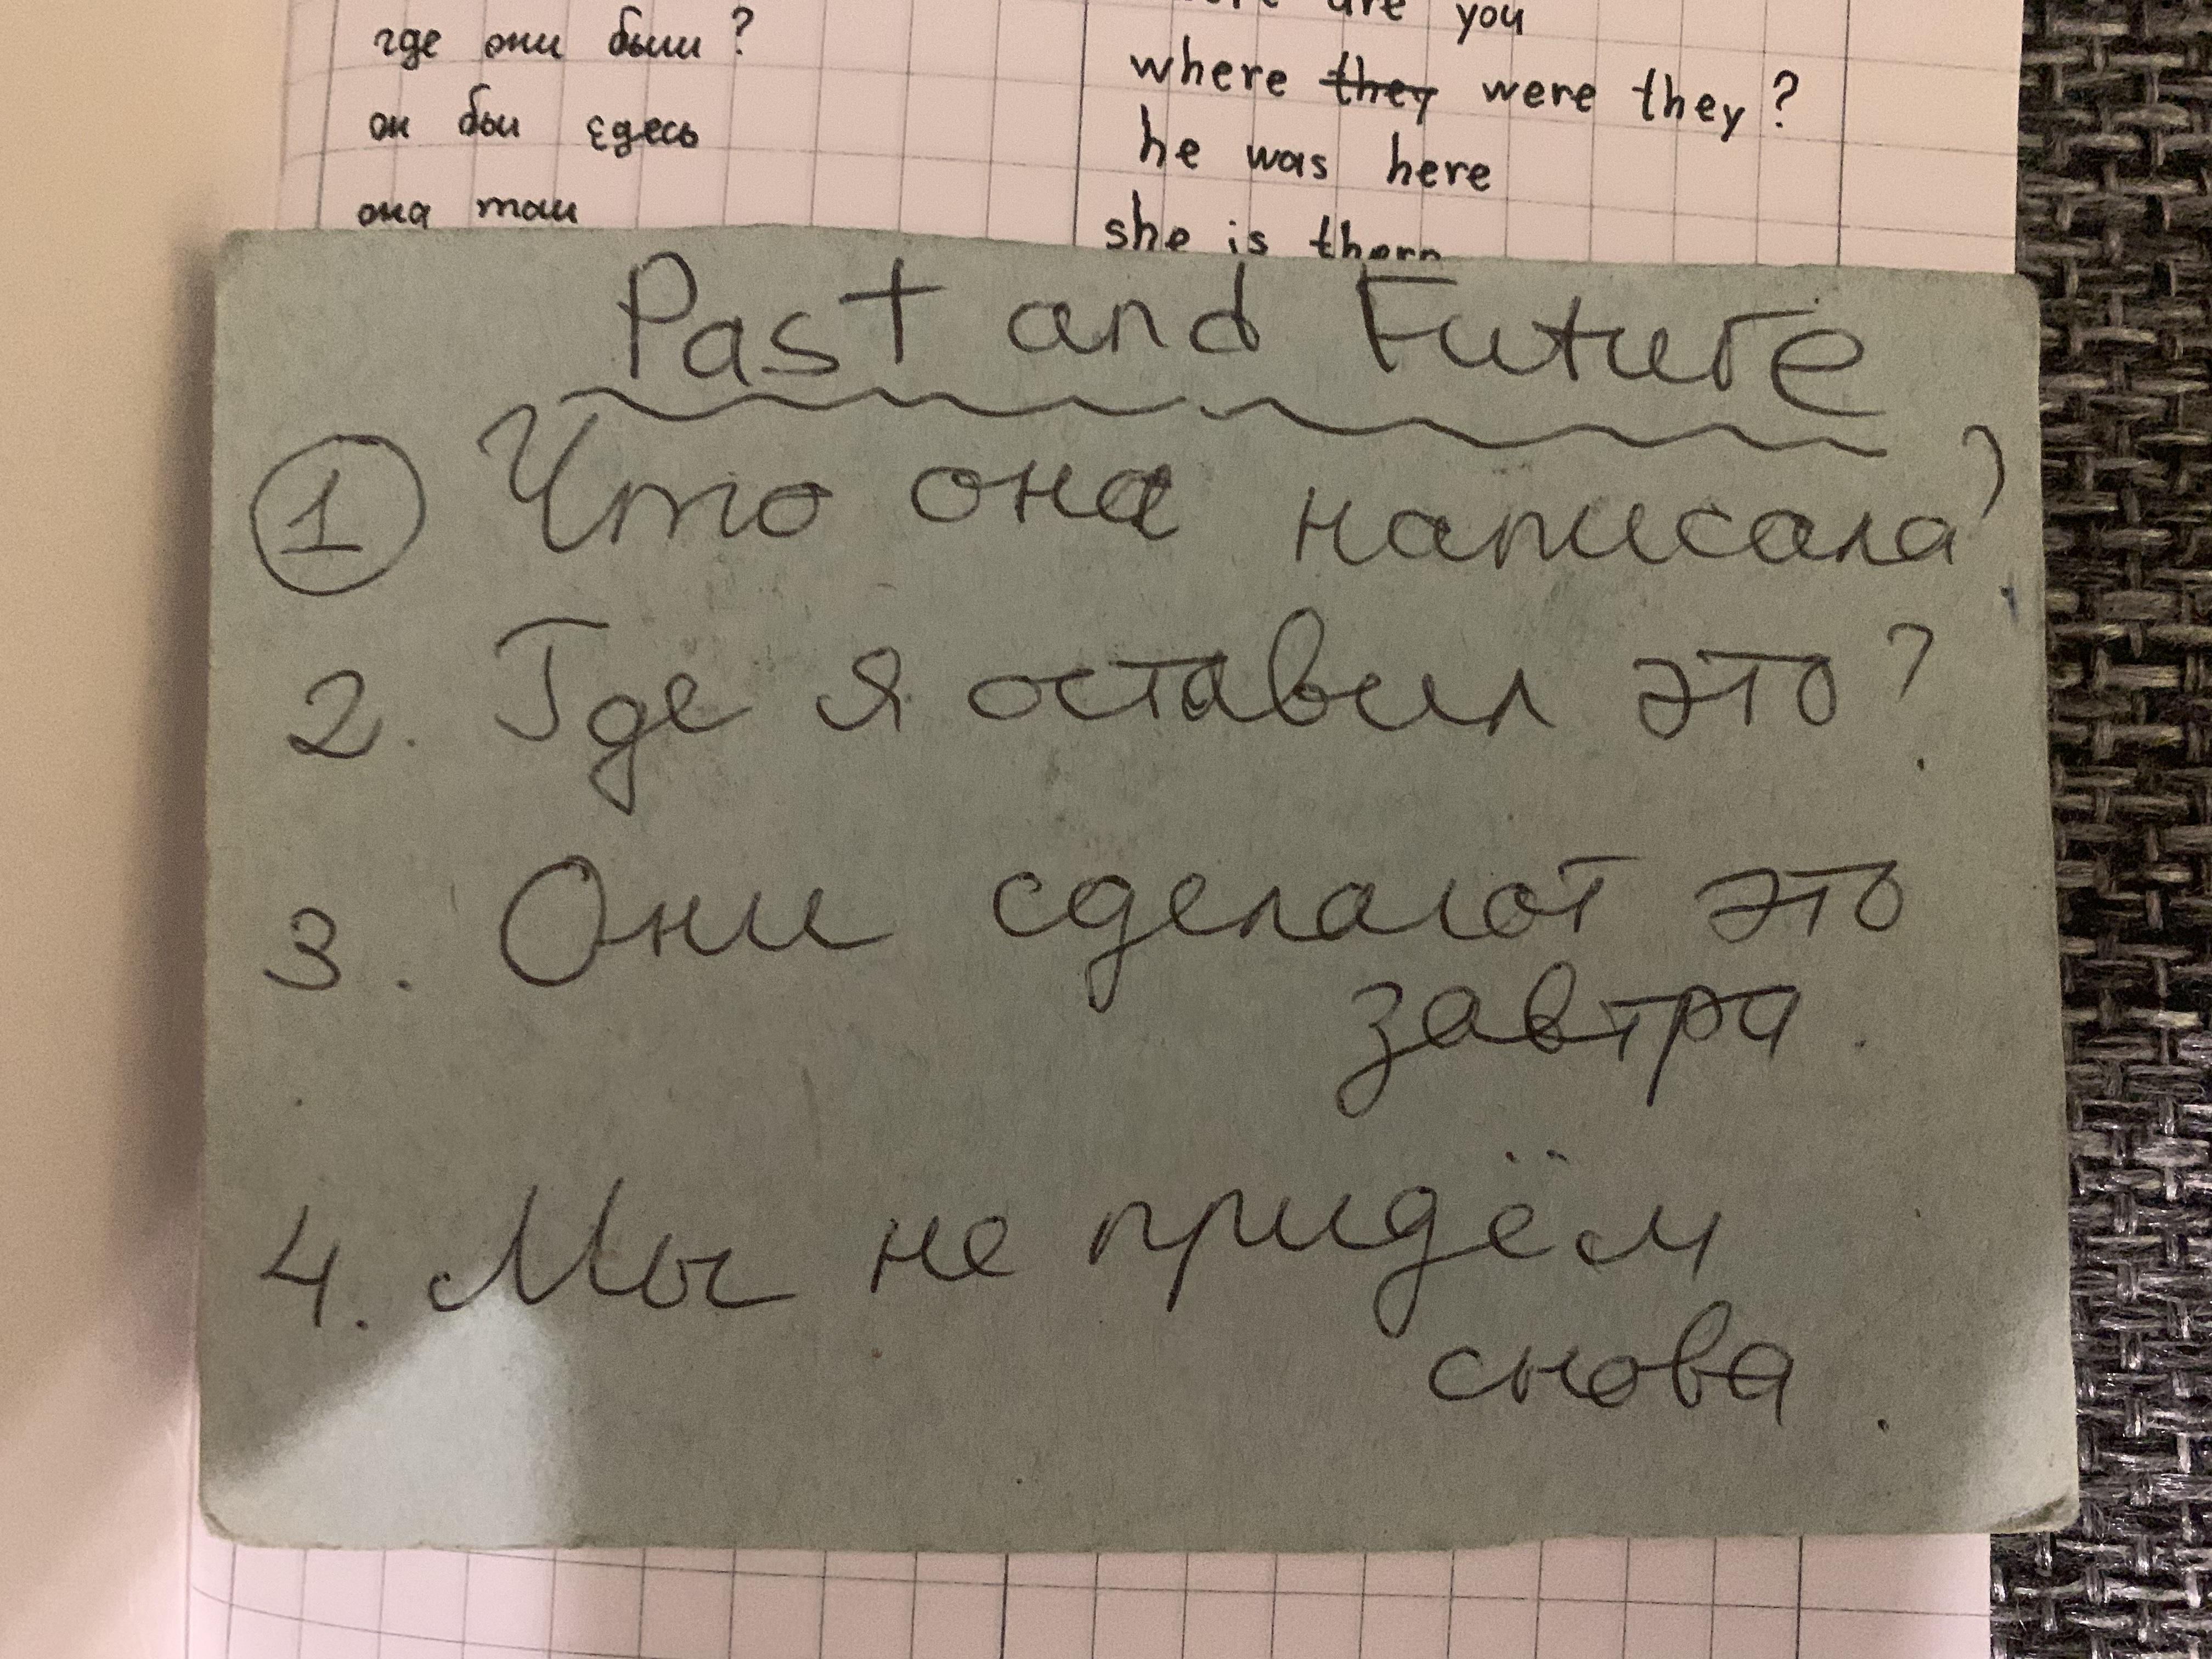 are you
где они были?
where they were they?
он был здесь
he was here
она там
she is there
Past and Future
1 Что она написала?
2. Где я оставил это?
3. Они сделают это
завтра.
4. Мы не придём
снова.